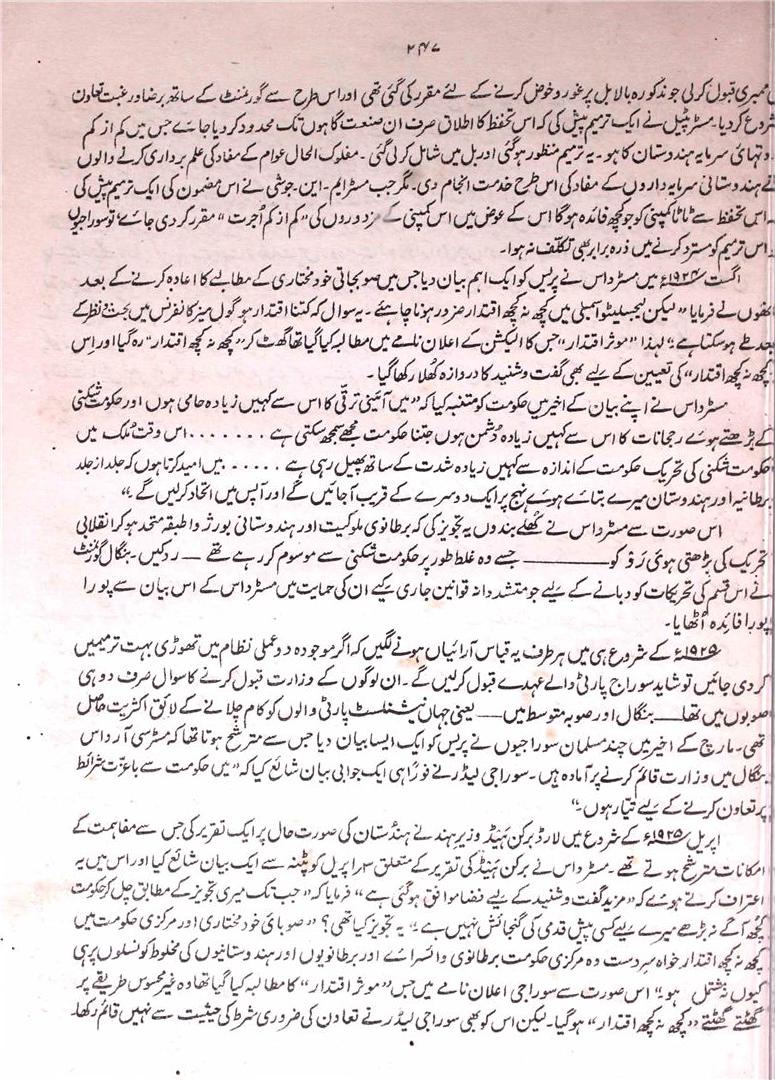 ۲۴۷
ممبری قبول کرلی جو مذکورہ بالا بل پر غور و خوض کرنے کے لئے مقرر کی گئی تھی اور اس طرح سے گورنمنٹ کے ساتھ برضا و رغبت تعاون
شروع کر دیا۔ مسٹر پٹیل نے ایک ترمیم پیش کی کہ اس تحفظ کا اطلاق صرف ان صنعت گاہوں تک محدود کر دیا جائے جس میں کم از کم
دو تہائی سرمایہ ہندوستان کا ہو۔ یہ ترمیم منظور ہوگئی اور بل میں شامل کرلی گئی۔ مفلوک الحال عوام کے مفاد کی علم برداری کرنے والوں
نے ہندوستانی سرمایہ داروں کے مفاد کی اس طرح خدمت انجام دی۔ مگر جب مسٹر ایم۔ این۔ جوشی نے اس مضمون کی ایک ترمیم پیش کی
کہ اس تحفظ سے ٹاٹا کمپنی کو جو کچھ فائدہ ہوگا اس کے عوض میں اس کمپنی کے مزدوروں کی "کم از کم اُجرت" مقرر کر دی جائے، تو سوراجیوں
کو اس ترمیم کو مسترد کرنے میں ذرہ برابر بھی تکلف نہ ہوا۔
اگست ۱۹۲۴ء میں مسٹر داس نے پریس کو ایک اہم بیان دیا جس میں صوبجاتی خودمختاری کے مطالبے کا اعادہ کرنے کے بعد
انھوں نے فرمایا "لیکن لیجسلیٹو اسمبلی میں کچھ نہ کچھ اقتدار ضرور ہونا چاہئے۔ یہ سوال کہ کتنا اقتدار ہو گول میز کانفرنس میں بحث و نظر کے
بعد طے ہو سکتا ہے"، لہذا "موثر اقتدار" جس کا الیکشن کے اعلان نامے میں مطالبہ کیا گیا تھا گھٹ کر "کچھ نہ کچھ اقتدار" رہ گیا اور اِس
"کچھ نہ کچھ اقتدار" کی تعیین کے لیے بھی گفت و شنید کا دروازہ کُھلا رکھا گیا۔
مسٹر داس نے اپنے بیان کے اخیر میں حکومت کو متنبہ کیا کہ "میں آئینی ترقی کا اس سے کہیں زیادہ حامی ہوں اور حکومت شکنی
کے بڑھتے ہوئے رجحانات کا اس سے کہیں زیادہ دُشمن ہوں جتنا حکومت مجھے سمجھ سکتی ہے ....... اس وقت ملک میں
حکومت شکنی کی تحریک حکومت کے اندازہ سے کہیں زیادہ شدت کے ساتھ پھیل رہی ہے ...... میں امید کرتا ہوں کہ جلد از جلد
برطانیہ اور ہندوستان میرے بتائے ہوئے نہج پر ایک دوسرے کے قریب آجائیں گے اور آپس میں اتحاد کرلیں گے"
اس صورت سے مسٹر داس نے کُھلے بندوں یہ تجویز کی کہ برطانوی ملوکیت اور ہندوستانی بورژوا طبقہ متحد ہو کر انقلابی
تحریک کی بڑھتی ہوئی رَو کو ——— جسے وہ غلط طور پر حکومت شکنی سے موسوم کر رہے تھے — روکیں۔ بنگال گورنمنٹ
نے اس قسم کی تحریکات کو دبانے کے لیے جو متشددانہ قوانین جاری کیے ان کی حمایت میں مسٹر داس کے اس بیان سے پورا
پورا فائدہ اُٹھایا۔
۱۹۲۵ء کے شروع ہی میں ہر طرف یہ قیاس آرائیاں ہونے لگیں کہ اگر موجودہ دو عملی نظام میں تھوڑی بہت ترمیمیں
کر دی جائیں تو شاید سوراج پارٹی والے عہدے قبول کرلیں گے۔ ان لوگوں کے وزارت قبول کرنے کا سوال صرف دو ہی
صوبوں میں تھا—— بنگال اور صوبہ متوسط میں —— یعنی جہاں نیشنلسٹ پارٹی والوں کو کام چلانے کے لائق اکثریت حاصل
تھی۔ مارچ کے اخیر میں چند مسلمان سوراجیوں نے پریس کو ایک ایسا بیان دیا جس سے مترشح ہوتا تھا کہ مسٹر سی آر داس
بنگال میں وزارت قائم کرنے پر آمادہ ہیں۔ سوراجی لیڈر نے فوراً ہی ایک جوابی بیان شائع کیا کہ "میں حکومت سے باعزت شرائط
پر تعاون کرنے کے لیے تیار ہوں۔"
اپریل ۱۹۲۵ء کے شروع میں لارڈ برکن ہیڈ وزیر ہند نے ہندُستان کی صورت حال پر ایک تقریر کی جس سے مفاہمت کے
امکانات مترشح ہوتے تھے۔ مسٹر داس نے برکن ہیڈ کی تقریر کے متعلق ۳ اپریل کو پٹنہ سے ایک بیان شائع کیا اور اس میں یہ
اعتراف کرتے ہوئے کہ "مزید گفت و شنید کے لیے فضا موافق ہوگئی ہے" فرمایا کہ "جب تک میری تجویز کے مطابق چل کر حکومت
کچھ آگے نہ بڑھے میرے لیے کسی پیش قدمی کی گنجائش نہیں ہے"، یہ تجویز کیا تھی؟ "صوبائی خود مختاری اور مرکزی حکومت میں
کچھ نہ کچھ اقتدار خواہ سرِدست وہ مرکزی حکومت برطانوی وائسرائے اور برطانویوں اور ہندوستانیوں کی مخلوط کونسلوں پر ہی
کیوں نہ مشتمل ہو"، اس صورت سے سوراجی اعلان نامے میں جس "موثر اقتدار" کا مطالبہ کیا گیا تھا وہ غیر محسوس طریقے پر
گھٹتے گھٹتے "کچھ نہ کچھ اقتدار" ہوگیا۔ لیکن اس کو بھی سوراجی لیڈر نے تعاون کی ضروری شرط کی حیثیت سے نہیں قائم رکھا۔